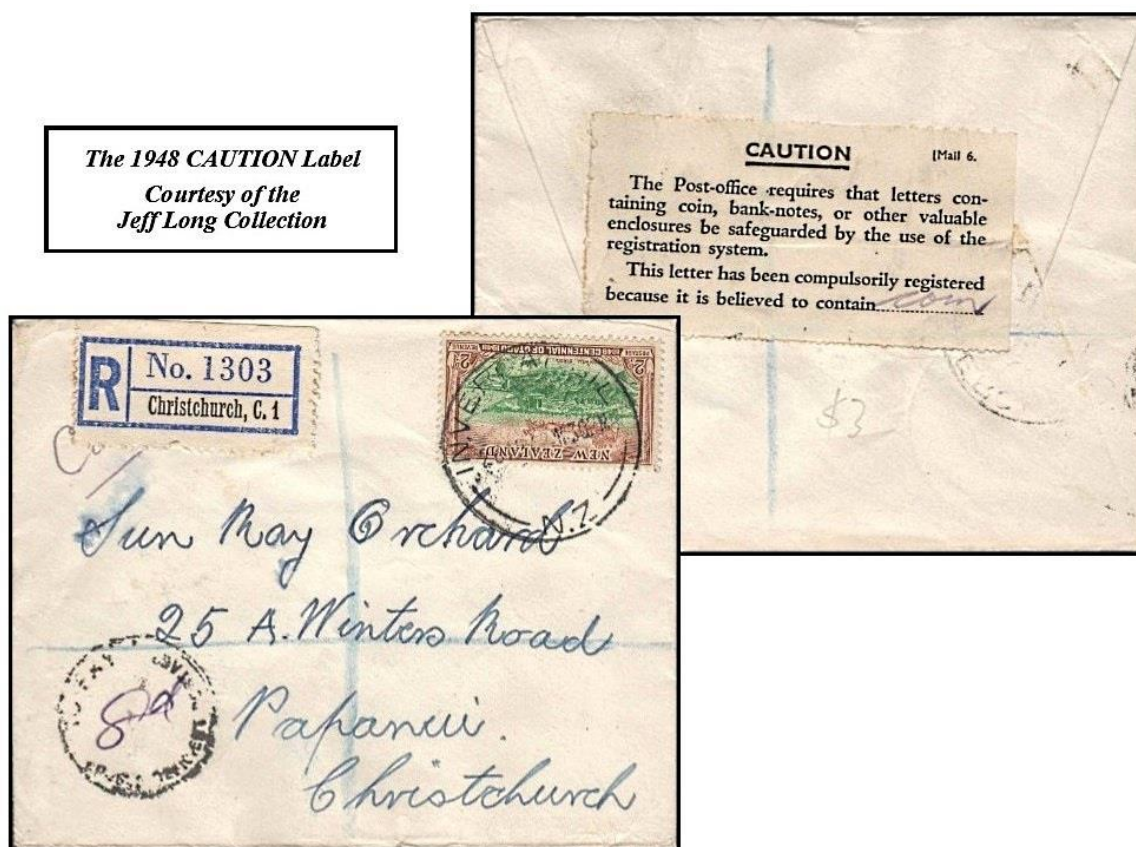 The 1948 CAUTION Label
Courtesy of the
Jeff Long Collection
CAUTION [Mail 6.
The Post-office requires that letters con-
taining coin, bank-notes, or other valuable
enclosures be safeguarded by the use of the
registration system.
This letter has been compulsorily registered
because it is believed to contain coin
$3
R No. 1303
Christchurch, C. 1
2d 1848 CENTENNIAL OF OTAGO 1948 2d
POSTAGE REVENUE
NEW ZEALAND
INVERCARGILL
N.Z.
Sun Ray Orchard
25 A. Winters Road
Papanui
Christchurch
8d